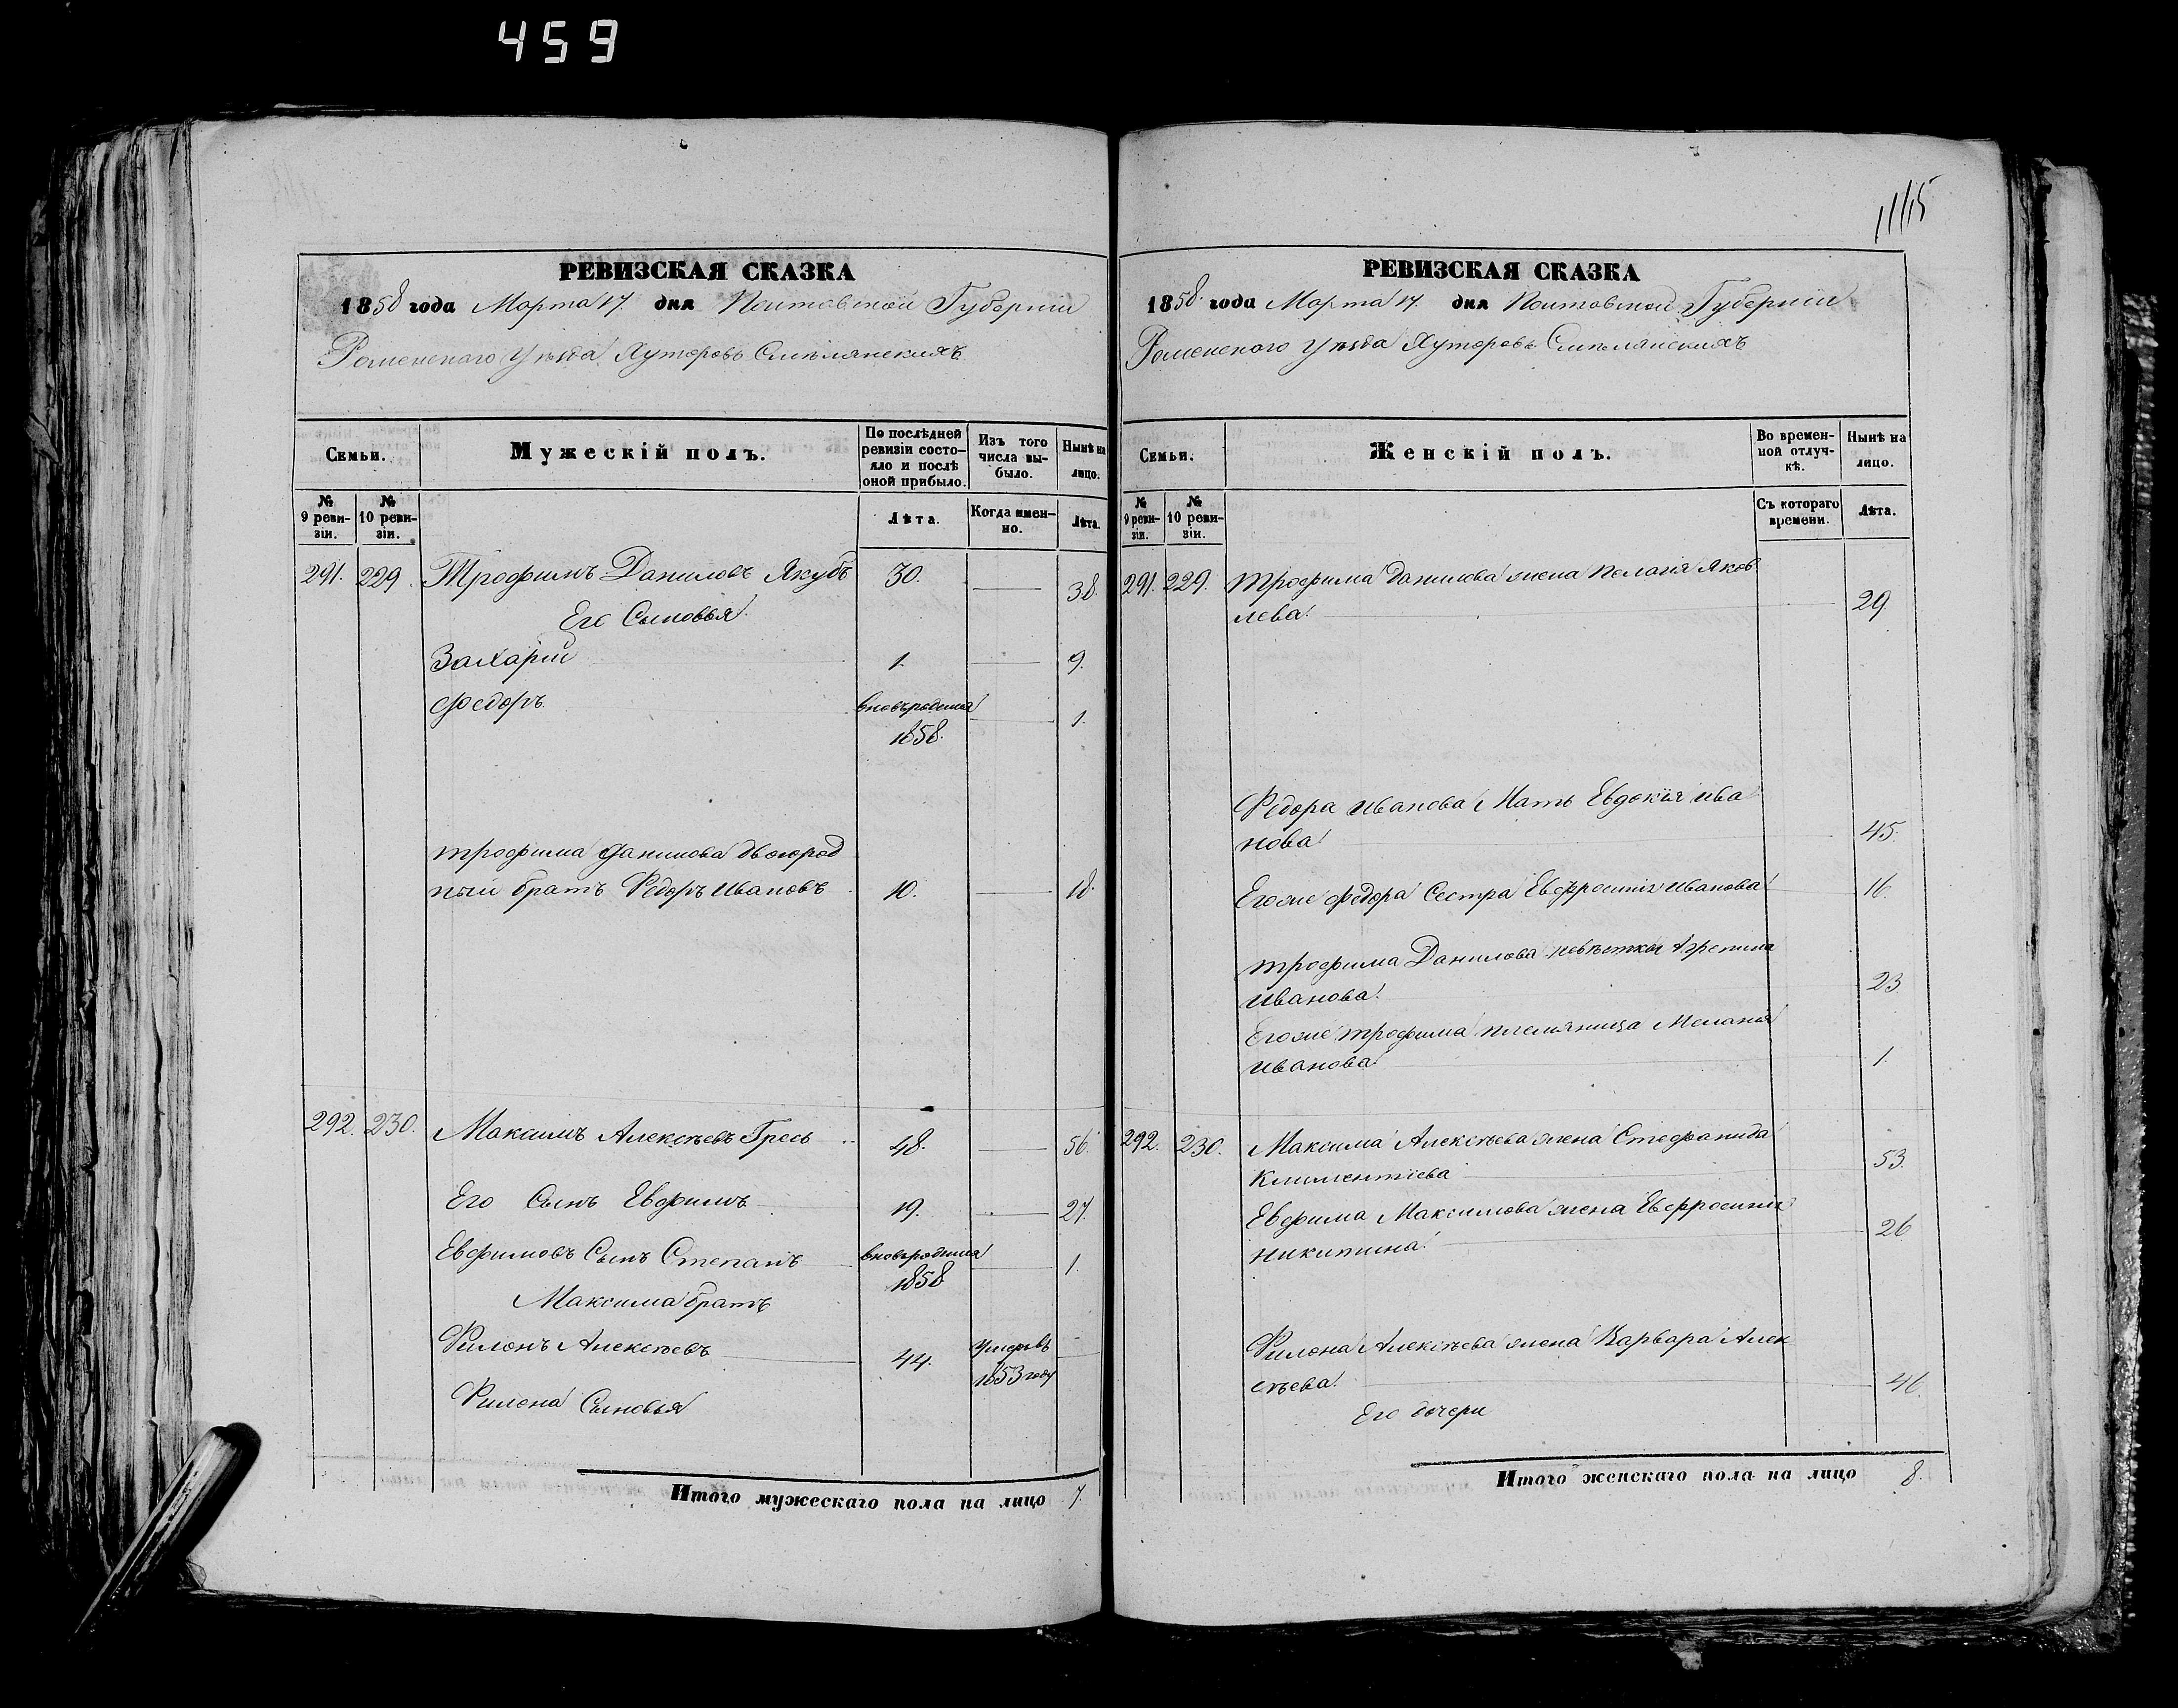 459
РЕВИЗСКАЯ СКАЗКА
1858 года Марта 17. дня Полтавской Губерніи
Роменского Уѣзда Хуторовъ Смѣлянскихъ
Семьи.
Мужескій полъ.
По послѣдней
ревизіи состо-
яло и послѣ
оной прибыло.
Изъ того
числа вы-
было.
Нынѣ на
лицо.
№
9 реви-
зіи.
№
10 реви-
зіи.
Лѣта.
Когда имен-
но.
Лѣта.
291. 229. Трофимъ Даниловъ Якубъ 30. 38.
Его Сыновья
Захарій 1. 9.
Федоръ вновьрожденъ 1.
1858.
трофима данилова двоюрод
ный братъ Федоръ Ивановъ 10. 18
292. 230. Максимъ Алексѣевъ Гресь 48. 56.
Его Сынъ Евфимъ 19. 27.
Евфимовъ Сынъ Степанъ вновьрожденъ 1.
1858
Максима братъ
Филонъ Алексѣевъ 44. Умеръ въ
1853 году
Филона Сыновья
Итого мужескаго пола на лицо 7.
1115
РЕВИЗСКАЯ СКАЗКА
1858 года Марта 17. дня Полтавской Губерніи
Роменского Уѣзда Хуторовъ Смѣлянскихъ
Семьи.
Женскій полъ.
Во времен-
ной отлуч-
кѣ.
Нынѣ на
лицо.
№
9 реви-
зіи.
№
10 реви-
зіи.
Съ котораго
времени.
Лѣта.
291. 229. трофима данилова жена Пелагія Яков
лева 29
Федора Иванова Мать Евдокія Ива
нова 45.
Егоже федора Сестра Евфросинія Иванова 16.
трофима Данилова невѣстка Агрепина
Иванова 23
Егоже трофима племянница Меланія
Иванова 1.
292. 230. Максима Алексѣева жена Стефанида
Климентіева 53.
Евфима Максимова жена Евфросинія
Никитина 26
Филона Алексѣева жена Варвара Алек
сѣева 46.
Его дочери
Итого женскаго пола на лицо 8.